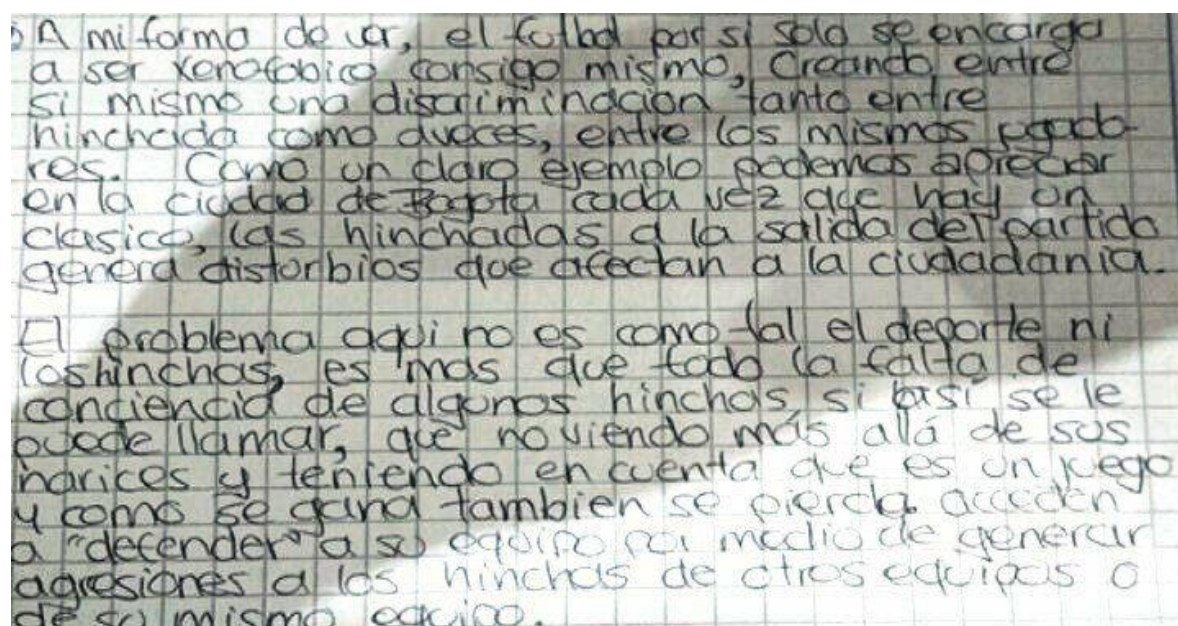 A mi forma de ver, el futbol por si solo se encarga
a ser xenofobico consigo mismo, creando entre
si mismo una discriminacion tanto entre
hinchada como aveces, entre los mismos jugado-
res. Como un claro ejemplo podemos apreciar
en la ciudad de Bogota cada vez que hay un
clasico, las hinchadas a la salida del partido
genera disturbios que afectan a la ciudadania.
El problema aqui no es como tal el deporte ni
los hinchas, es mas que todo la falta de
conciencia de algunos hinchas, si asi se le
puede llamar, que no viendo más allá de sus
narices y teniendo en cuenta que es un juego
y como se gana tambien se pierda acceden
a "defender" a su equipo por medio de generar
agresiones a los hinchas de otros equipos o
de su mismo equipo.